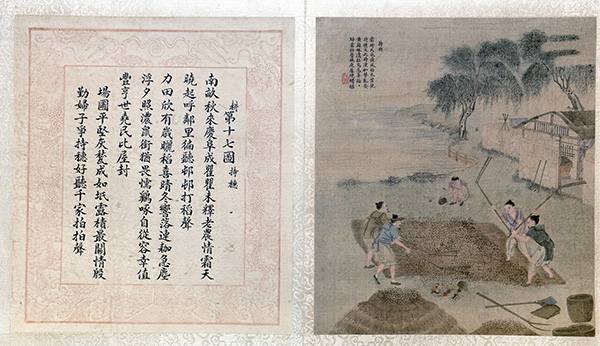 耕 第十七圖 持穗
南畝秋來慶阜成瞿瞿未釋老農情霜天
曉起呼鄰里徧聽邨邨打稻聲
力田欣有歲曬稻喜晴冬響落連耞急塵
浮夕照濃鼠銜猶畏懦雞啄自從容幸值
豐亨世堯民比屋封
場圃平堅灰甃成如坻露積最關情殷
勤婦子爭持穗好聽千家拍拍聲
持穗